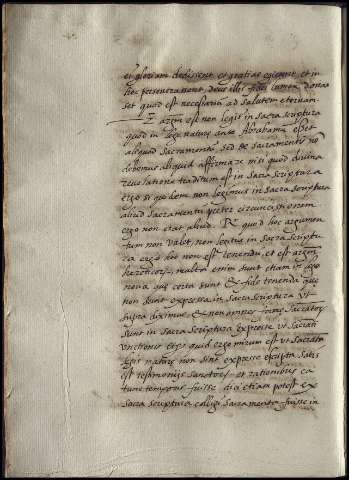 et gloriam dedissent et gratias egissent et in
hoc perseverarent, deus illis fidei lumen donas
set quod est necessarium ad salutem eternam.
2 argm est non legis in sacra scriptura
quod in lege nature ante Abraham esset
aliquod sacramentu sed de sacramentis no
debemus aliquid affirmare nisi quod divina
revelatione traditum est in sacra scriptura
ergo si quidem non legimus in sacra scriptura
aliud sacramentu preter circuncisionem
ergo non erat aliud. R quod hoc argumen
tum non valet, non legitur in sacra scriptu
ra ergo hoc non est tenendu, et est argm
hereticoru, multa enim sunt etiam in
nova que certa sunt & fide tenenda que
non sunt expressa in sacra scriptura ut
supra diximus & non omnes formę sacratoru
sunt in sacra scriptura expresse ut sacrati
unctionis etc. quid ergo mirum est ut sacrata
legis nature non sint expresse scripta satis
est testimonijs sanctoru et rationibus
tunc temporis fuisse dici etiam potest ex
sacra scriptura colligi sacramenta fuisse in